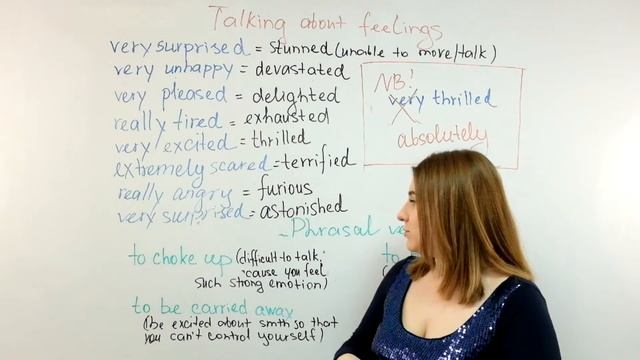 Talking about feelings
very surprised = stunned (unable to move/talk)
very unhappy = devastated
very pleased = delighted
really tired = exhausted
very excited = thrilled
extremely scared = terrified
really angry = furious
very surprised = astonished
NB!
very thrilled
absolutely
~Phrasal
to choke up (difficult to talk,
'cause you feel
such strong emotion)
to be carried away
(be excited about smth so that
you can't control yourself)